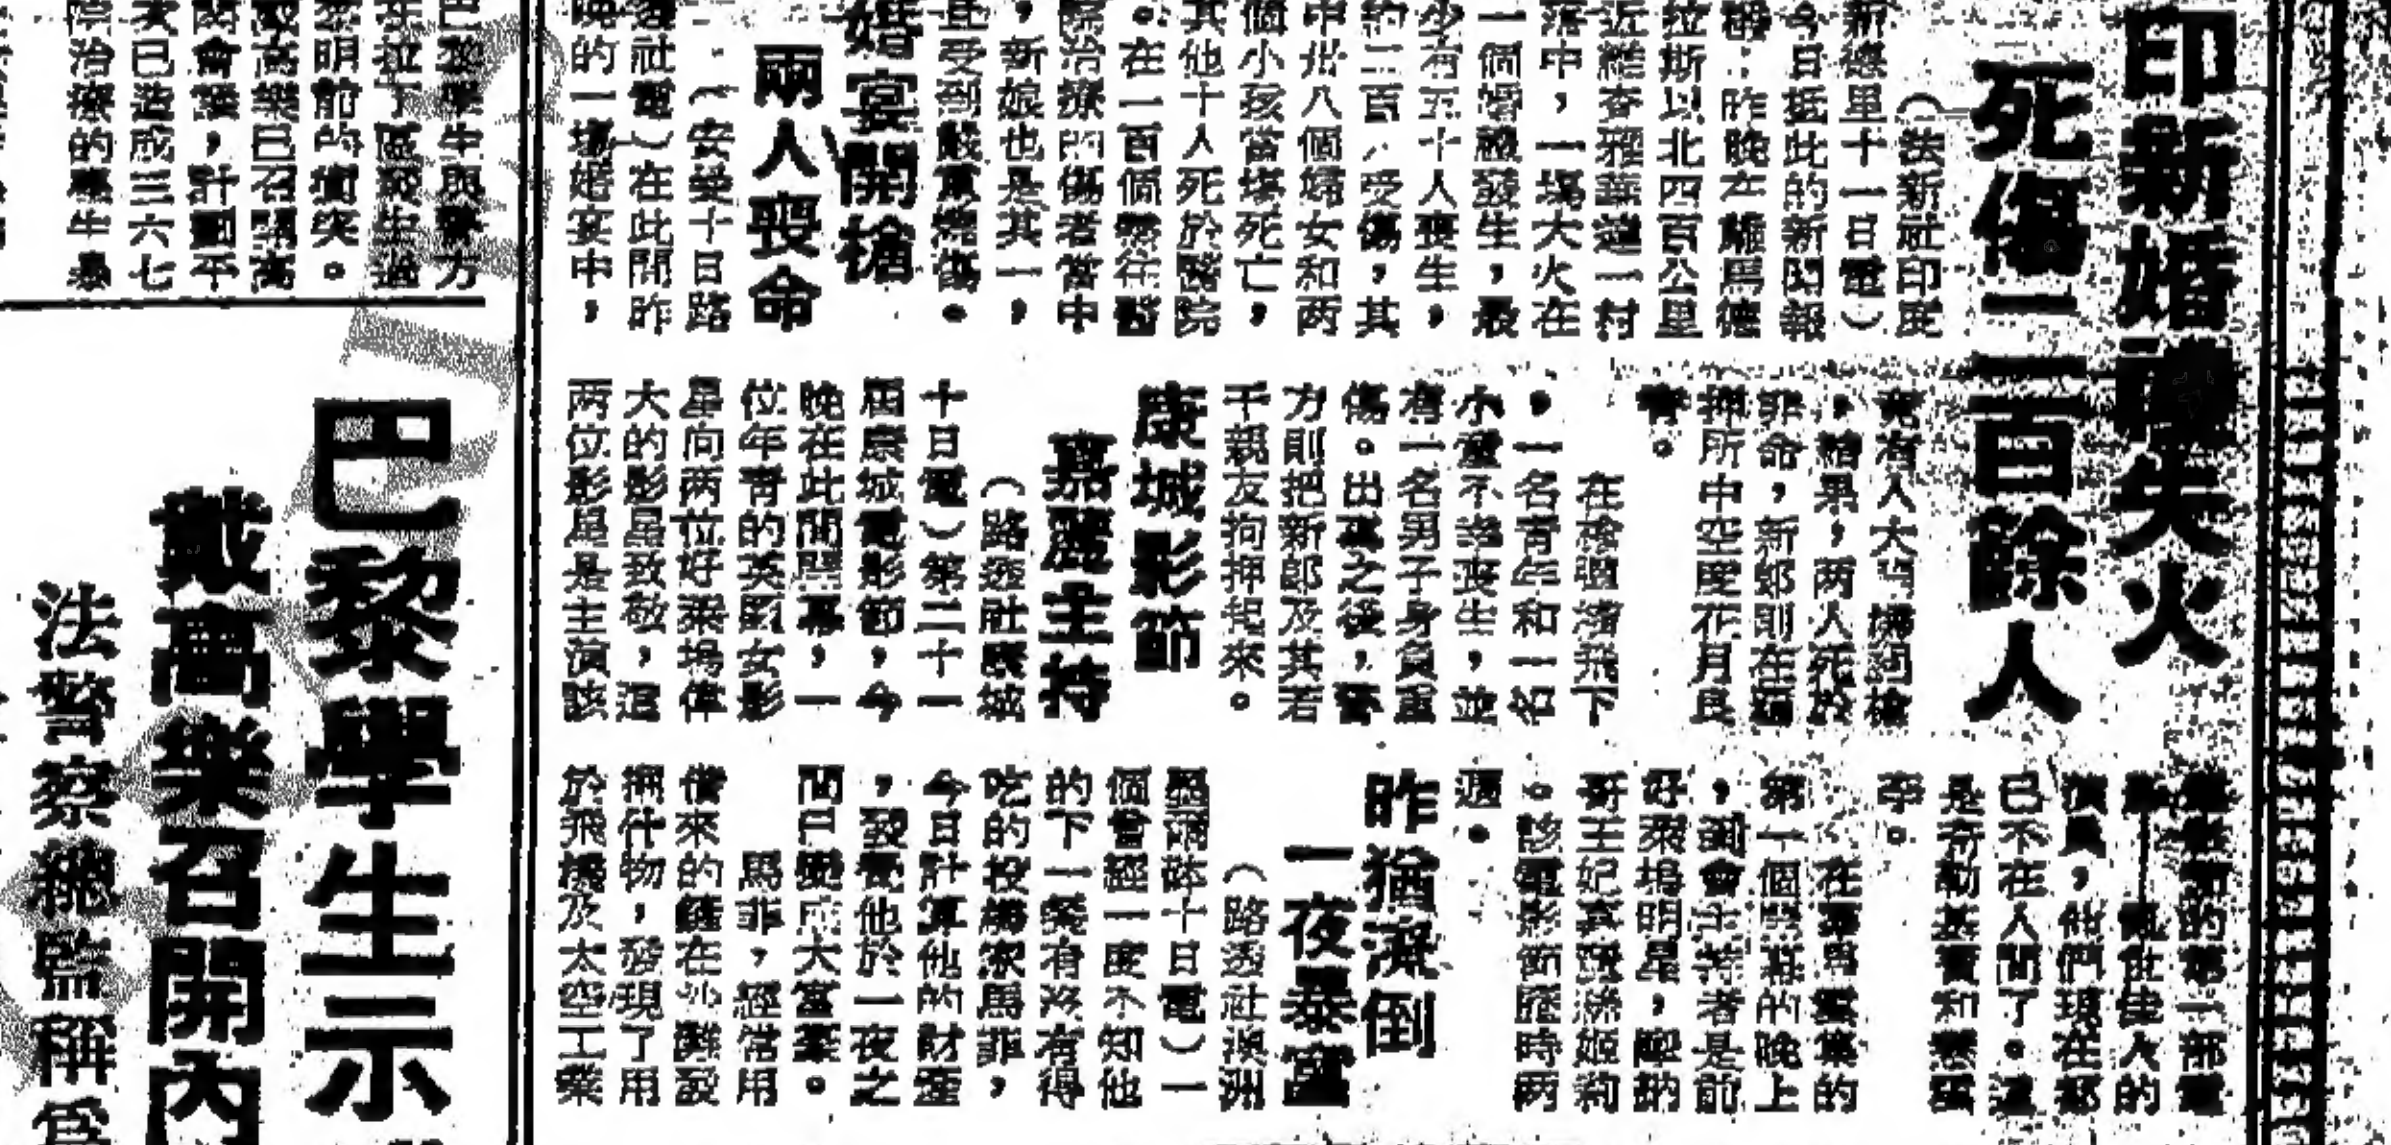 印新婚
失火
死傷二百餘人
(法新社印度
新德里十一日電)
今日抵此的新聞報
稱:昨晚在離馬德
拉斯以北四百公里
近維查雅華達一村
落中,一場大火在
一個婚禮發生,最
少有五十人喪生,
約二百人受傷,其
中卅八個婦女和两
個小孩當場死亡,
其他十人死於醫院
。在一百個送往醫
院治療的傷者當中
,新娘也是其一,
且受到嚴重燒傷。
婚宴開槍
兩人喪命
(安曼十日路
透社電)在此間昨
晚的一場婚宴中,
竟有人大
開槍
,結果,两人死於
非命,新郎則在
押所中空度花月良
宵。
在槍彈
飛下
,一名青年和一名
小童不幸喪生,並
有一名男子身負重
傷。出事之後,警
方則把新郎及其若
干親友拘押起來。
康城影節
嘉麗主持
(路透社康城
十日電)第二十一
屆康城電影節,今
晚在此間開幕,一
位年青的英國女影
星向两位好萊塢偉
大的影星致敬,這
两位影星是主演該
的第一部電
佳人的
演員,他們現在都
已不在人間了。這
是奇勒基寶和
第一個開幕的晚上
,剪會主持者是前
好萊塢明星,摩納
哥王妃嘉麗絲姬莉
。該電影節歷時两
週。
昨猶潦倒
一夜暴富
(路透社澳洲
十日電)一
個曾經一度不知他
的下一餐有沒有得
吃的投機家馬菲,
今日計算他的財產
,發覺他於一夜之
間已變成大富豪。
馬菲,經常用
借來的錢在沙灘設
攤什物,發現了用
於飛機及太空工業
巴黎學生與警方
在拉丁區發生過
黎明前的衝突。
戴高樂已召開高
閣會議,計劃平
次已造成三六七
院治療的學生暴
巴黎學生示
戴高樂召開內
法警察總監稱爲